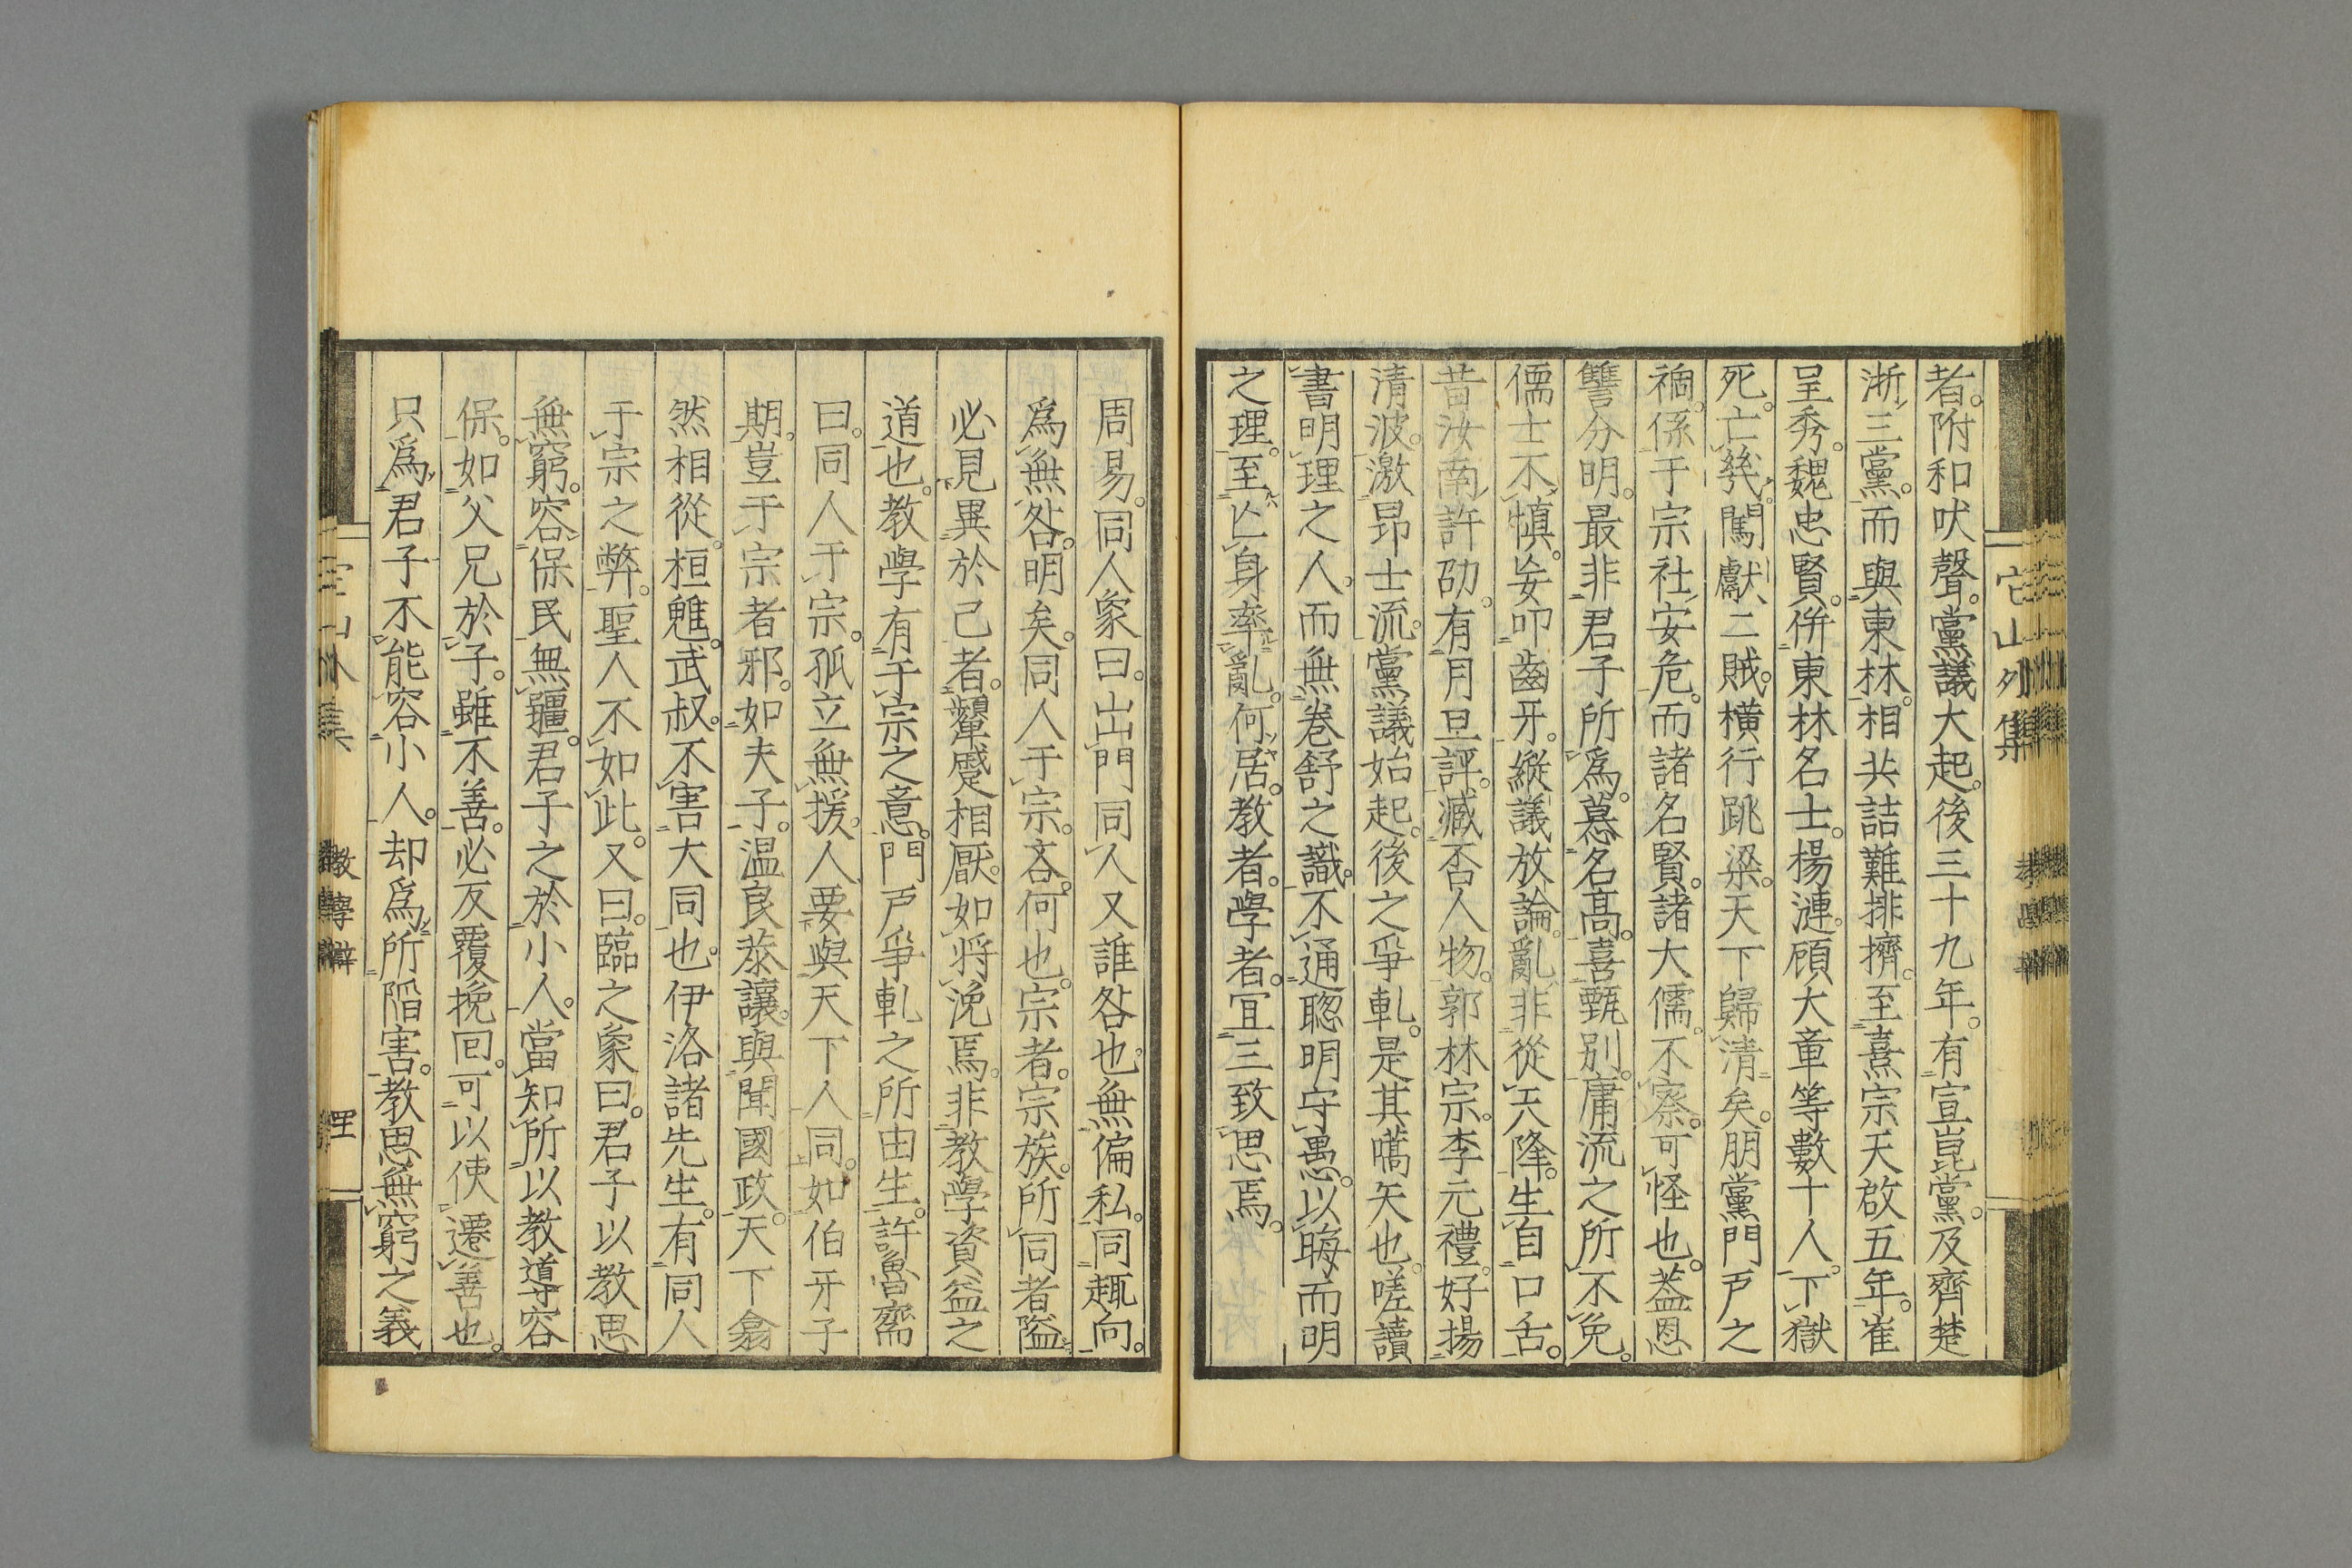 者。附和吠聲。黨議大起。後三十九年。有宣崑黨。及齊楚
浙三黨。而與東林。相共詰難排擠。至熹宗天啟五年。崔
呈秀。魏忠賢。併東林名士。楊漣。顧大章等數十人。下獄
死。亡幾。闖獻二賊。橫行跳梁。天下歸清矣。朋黨門戶之
禍。係于宗社安危。而諸名賢。諸大儒。不察。可怪也。蓋恩
讐分明。最非君子所爲。慕名高。喜甄別。庸流之所不免。
儒士不慎。妄叩齒牙。縱議放論。亂非從天降。生自口舌。
昔汝南許劭。有月旦評。臧否人物。郭林宗。李元禮。好揚
清波。激昂士流。黨議始起。後之爭軋。是其嚆矢也。嗟讀
書明理之人。而無卷舒之識。不通聰明守愚。以晦而明
之理。至亡身率亂。何居。教者。學者。宜三致思焉。
周易。同人象曰。出門同人又誰咎也。無偏私。同趣向。
爲無咎。明矣。同人于宗。吝。何也。宗者。宗族。所同者隘。
必見異於己者。顰蹙相厭。如將浼焉。非教學資益之
道也。教學有于宗之意。門戶爭軋之所由生。許魯齋
曰。同人于宗。孤立無援。人要與天下人同。如伯牙子
期。豈于宗者邪。如夫子。温良恭讓。與聞國政。天下翕
然相從。桓魋。武叔。不害大同也。伊洛諸先生。有同人
于宗之弊。聖人不如此。又曰。臨之象曰。君子以教思
無窮。容保民無疆。君子之於小人。當知所以教導容
保。如父兄於子。雖不善。必反覆挽回。可以使遷善也。
只爲君子不能容小人。却爲所陷害。教思無窮之義
它山外集
教學辯